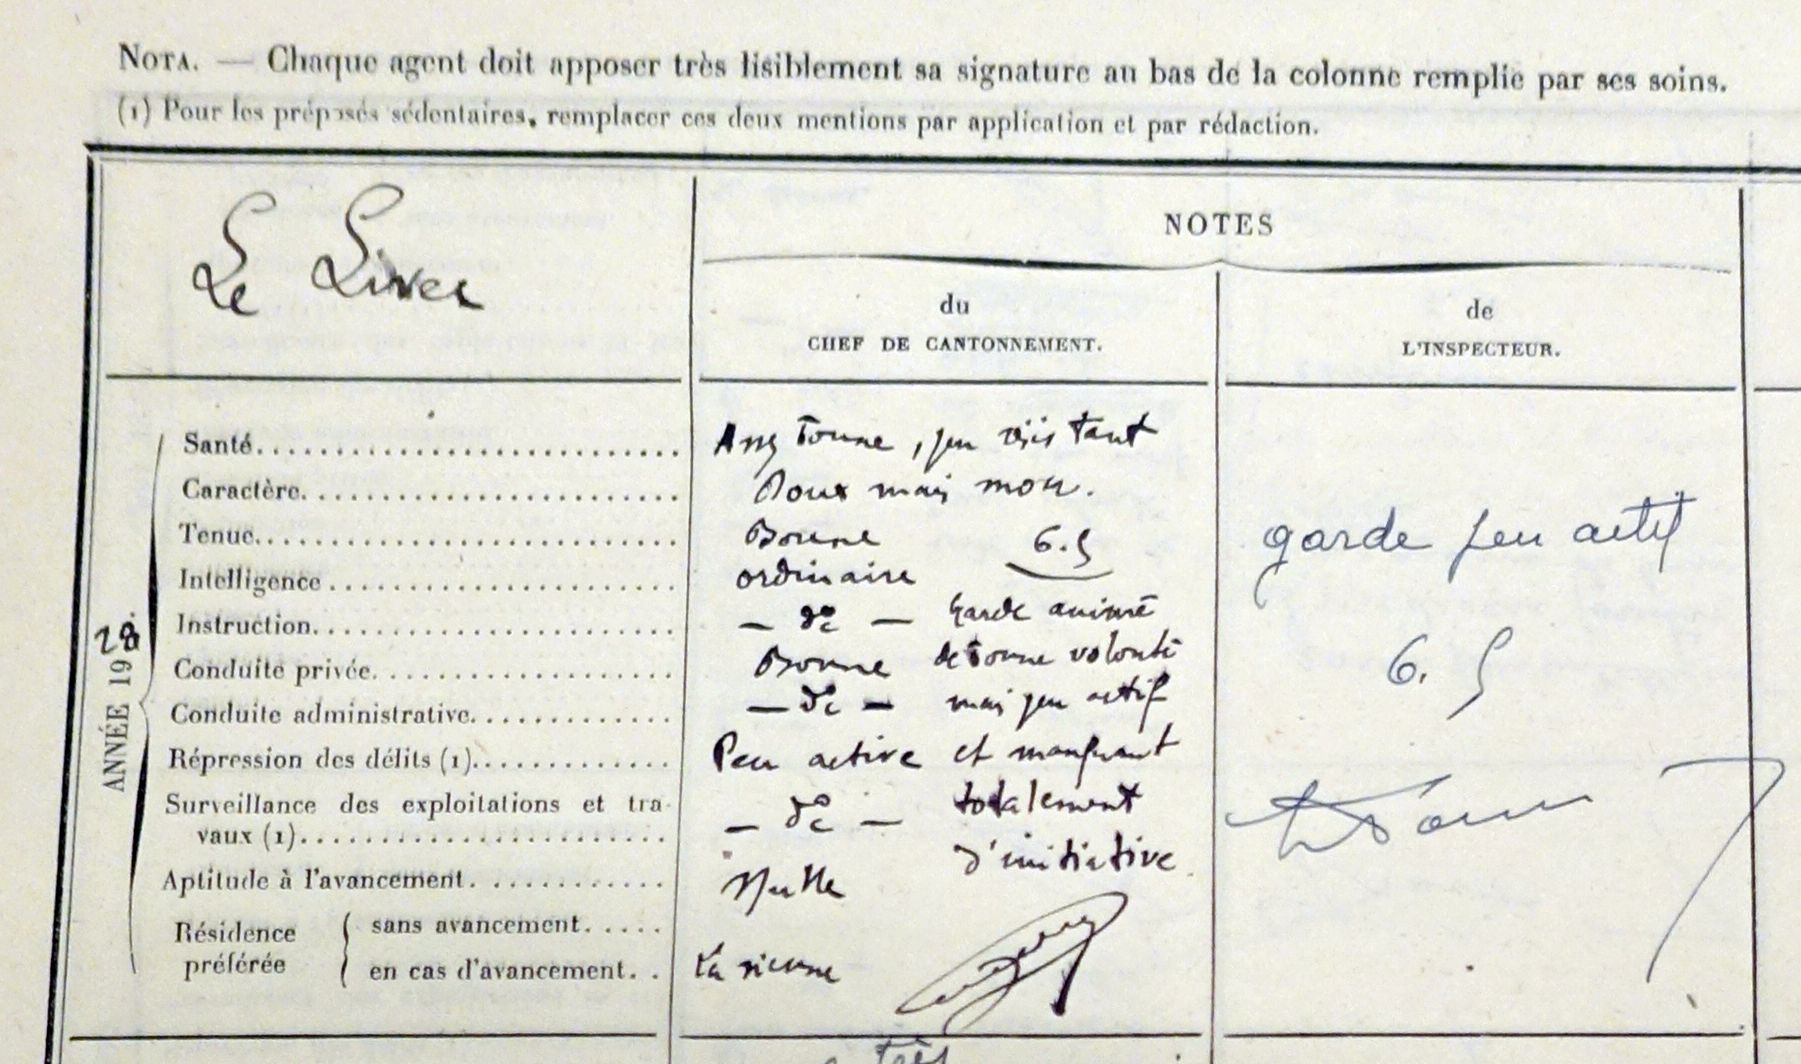 NOTA. — Chaque agent doit apposer très lisiblement sa signature au bas de la colonne remplie par ses soins.
(1) Pour les préposés sédentaires, remplacer ces deux mentions par application et par rédaction.
Le Liver
NOTES
du
CHEF DE CANTONNEMENT.
de
L'INSPECTEUR.
ANNÉE 1928.
Santé. Assez bonne, peu résistant
Caractère. Doux mais mou.
Tenue. Bonne 6.5
Intelligence ordinaire
Instruction. — do — Garde animé
Conduite privée. Bonne de bonne volonté
Conduite administrative. — do — mais peu actif
Répression des délits (1). Peu active et manquant
Surveillance des exploitations et tra-
vaux (1). — do — totalement
d'initiative
Aptitude à l'avancement. Nulle
Résidence
préférée
sans avancement.
en cas d'avancement. La sienne
garde peu actif
6.5
très